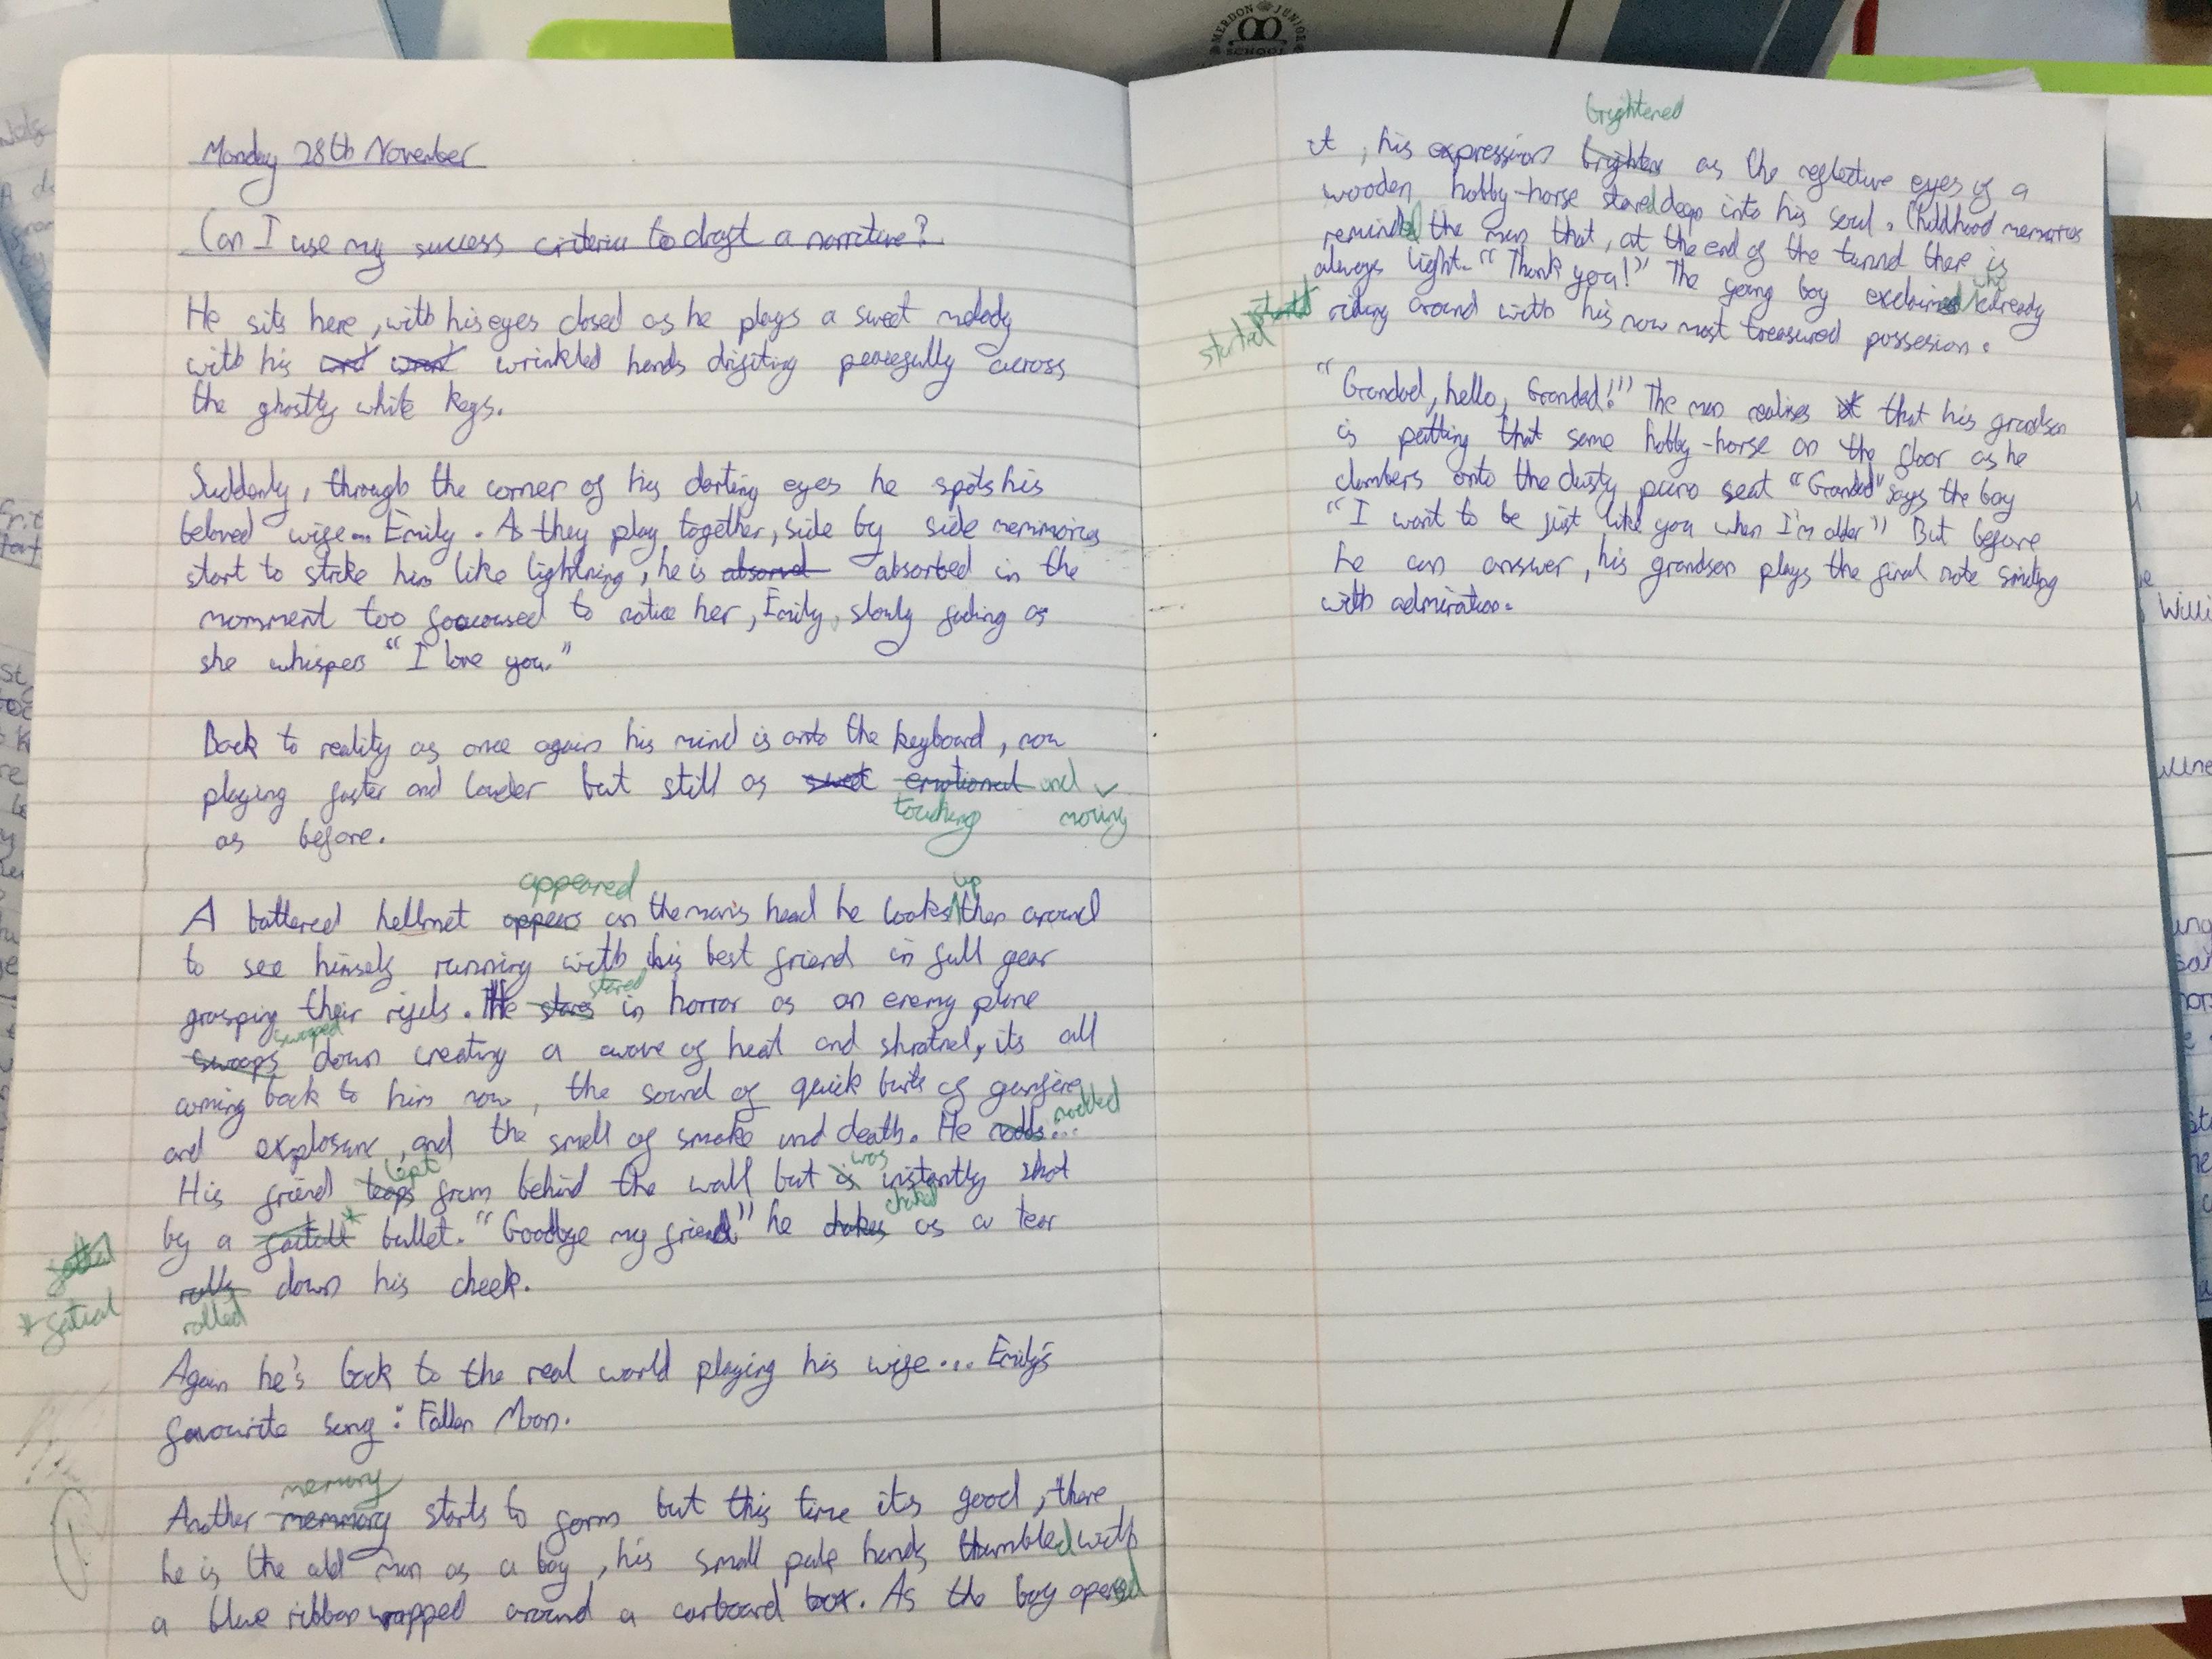 MERDON JUNIOR
SCHOOL
Monday 28th November
Can I use my success criteria to draft a narrative?
He sits here, with his eyes closed as he plays a sweet melody
with his wrinkled hands drifiting peacefully across
the ghostly white keys.
Suddenly, through the corner of his darting eyes he spots his
beloved wife... Emily. As they play together, side by side memmories
start to strike him like lightning, he is absorbed in the
momment too foucoused to notice her, Emily, slowly fading as
she whispers "I love you."
Back to reality as once again his mind is onto the keyboard, now
playing faster and louder but still as sweet emotional and
touching moving
as before.
appeared up
A battered hellmet appears on the man's head he looks then around
to see himself running with his best friend in full gear
stared
grasping their rifels. He stares in horror as an enemy plane
swooped
swoops down creating a wave of heat and shratnel, its all
coming back to him now, the sound of quick burts of gunfire
nodded
and explosions, and the smell of smoke and death. He nods...
lept was
His friend leaps from behind the wall but is instantly shot
choked
by a bullet. "Goodbye my friend" he chokes as a tear
rolls down his cheek.
*fatial rolled
Again he's back to the real world playing his wife... Emily's
favourite song: Fallen Moon.
memory
Another memmory starts to form but this time its good, there
he is the old man as a boy, his small pale hands thumbled with
a blue ribbon wrapped around a carboard box. As the boy opened
brightened
it, his expression brightens as the reflective eyes of a
wooden hobby-horse stared deep into his soul. Childhood memories
reminded the man that, at the end of the tunnel there is
always light. "Thank you!" The young boy exclaimed who already
started riding around with his now most treasured possesion.
"Grandad, hello, Grandad!" The man realises that his grandson
is putting that same hobby-horse on the floor as he
clambers onto the dusty piano seat "Grandad" says the boy
"I want to be just like you when I'm older" But before
he can answer, his grandson plays the final note smiling
with admiration.